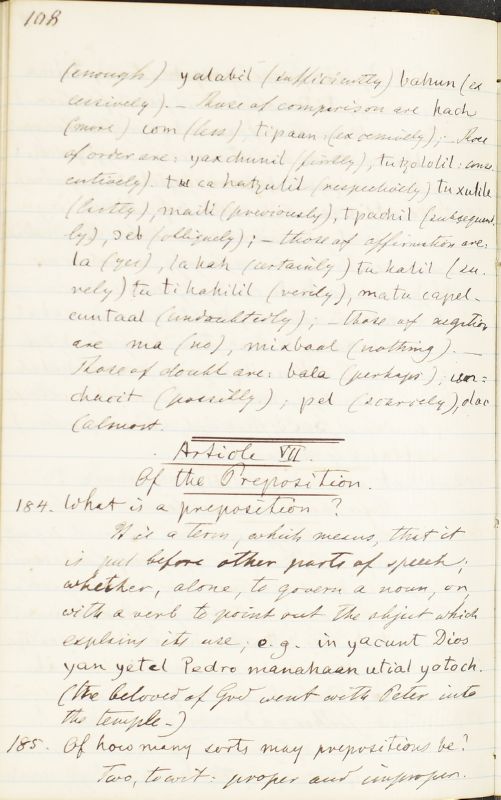 108
(enough) yalabil (sufficiently) bahun (ex
cessively). — Those of comparison are hach
(more) com (less), tipaan (excessively); — Those
of order are: yaxchunil (firstly), tutzolobil: conse
cutively). tu ca hatzulil (respectively) tu xulile
(lastly), maili (previously), tpachil (subsequent
ly), seb (obliquely); — those of affirmation are:
la (yes), lahah (certainly) tu hahil (su-
rely) tu tihahilil (verily), matu capel-
cuntaal (undoubtedly); — those of negation
are ma (no), mixbaal (nothing). —
Those of doubt are: bala (perhaps);
chacit (possibly); pel (scarcely),
(almost.
Article VII.
Of the Preposition.
184. What is a preposition?
It is a term, which means, that it
is put before other parts of speech;
whether, alone, to govern a noun, or,
with a verb to point out the object which
explains its use; e.g. in yacunt Dios
yan yetel Pedro manahaan utial yotoch.
(the beloved of God went with Peter into
the temple-)
185. Of how many sorts may prepositions be?
Two, to wit: proper and improper.